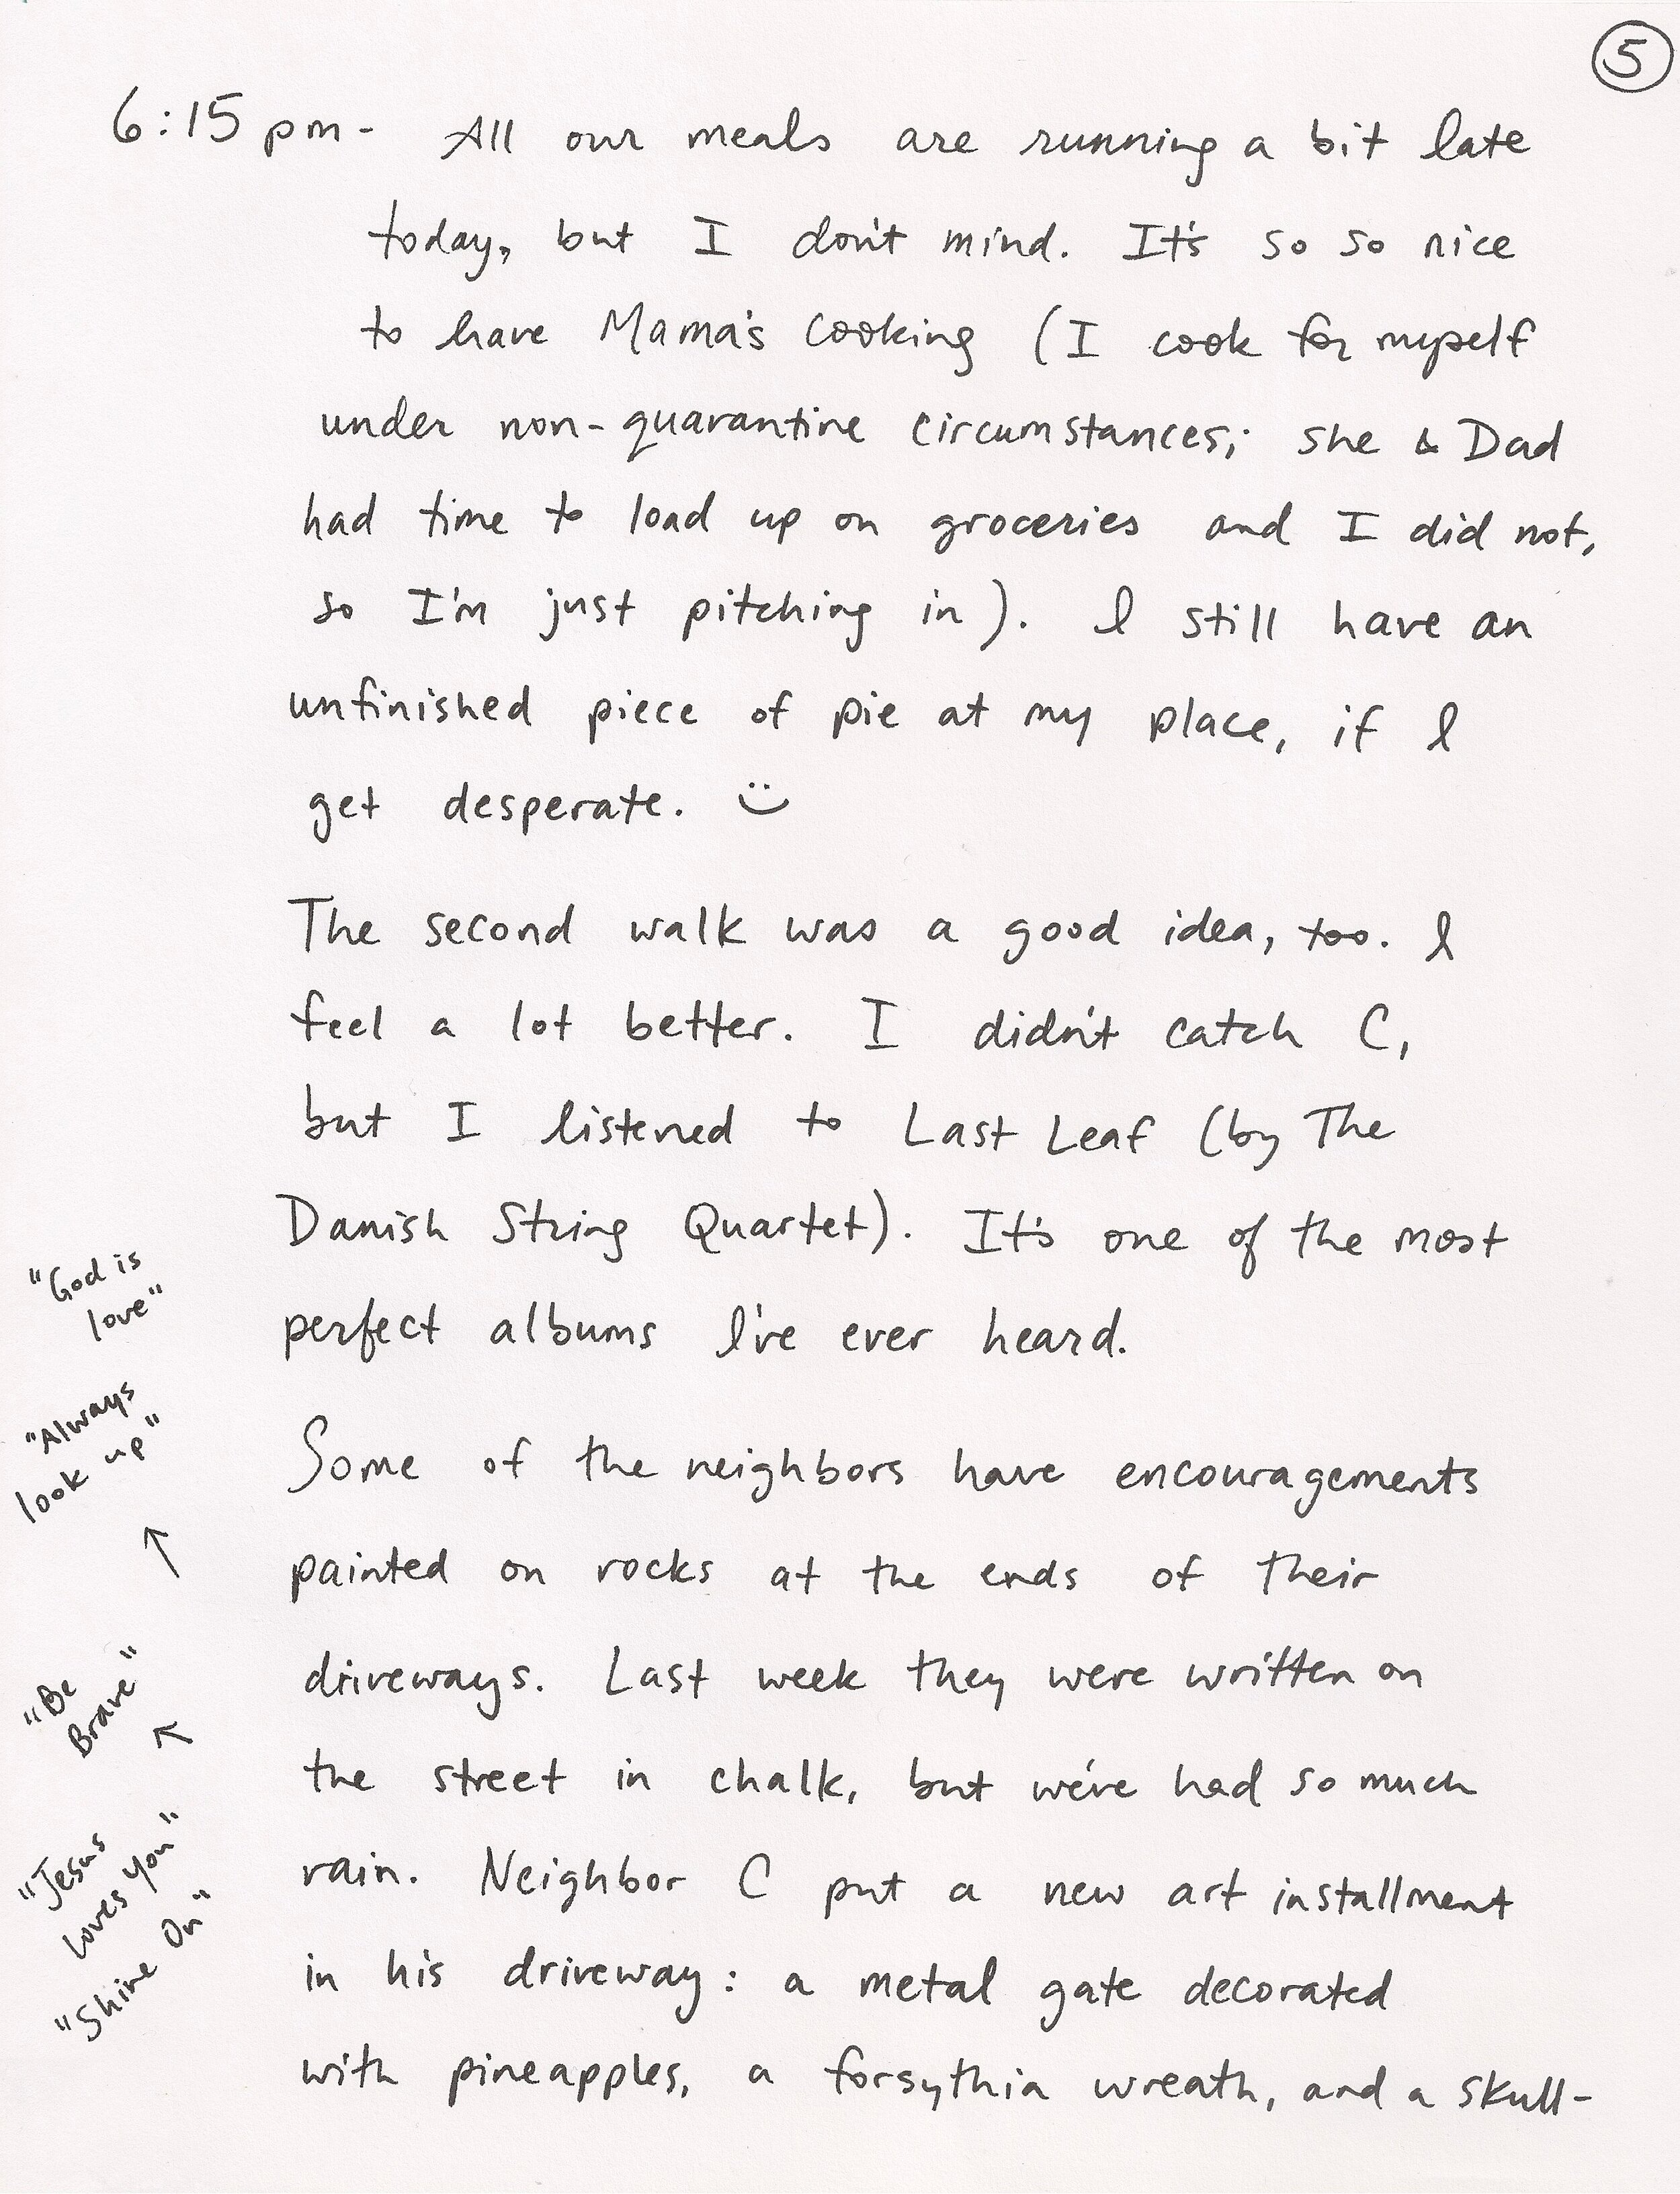 5
6:15 pm - All our meals are running a bit late
today, but I don't mind. It's so so nice
to have Mama's cooking (I cook for myself
under non-quarantine circumstances; she & Dad
had time to load up on groceries and I did not,
so I'm just pitching in). I still have an
unfinished piece of pie at my place, if I
get desperate. :)
The second walk was a good idea, too. I
feel a lot better. I didn't catch C,
but I listened to Last Leaf (by The
Danish String Quartet). It's one of the most
perfect albums I've ever heard.
Some of the neighbors have encouragements
painted on rocks at the ends of their
driveways. Last week they were written on
the street in chalk, but we've had so much
rain. Neighbor C put a new art installment
in his driveway: a metal gate decorated
with pineapples, a forsythia wreath, and a skull-
"God is
love"
"Always
look up"
↑
"Be
Brave"
↖
"Jesus
loves you"
"Shine On"